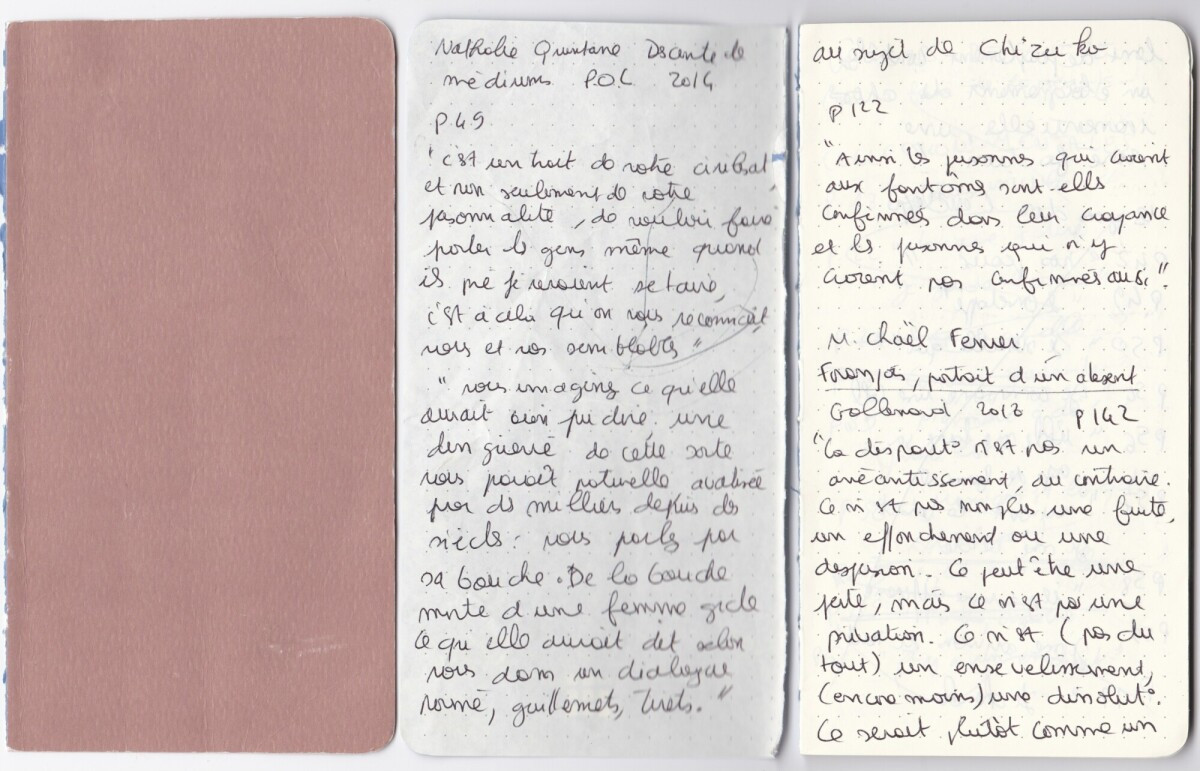 Nathalie Quintane Descente de
médiums P.O.L 2014
P 49
"C'est un trait de notre civilisat°
et non seulement de notre
personnalité, de vouloir faire
parler les gens même quand
ils préfèreraient se taire,
c'est à cela qu'on nous reconnaît,
nous et nos semblables"
"vous imaginez ce qu'elle
aurait bien pu dire une
dinguerie de cette sorte
vous paraît naturelle avalisée
par des milliers depuis des
siècles : vous parlez par
sa bouche. De la bouche
morte d'une femme gicle
ce qu'elle aurait dit selon
vous dans un dialogue
normé, guillemets, tirets."
au sujet de Chizuko
P 122
"Ainsi les personnes qui croient
aux fantômes sont elles
confirmées dans leur croyance
et les personnes qui n'y
croient pas confirmées aussi."
Michaël Ferrier
François, portrait d'un absent
Gallimard 2018 P 142
"La disparit° n'est pas un
anéantissement, au contraire.
Ce n'est pas non plus une fuite,
un effondrement ou une
dispersion. Ce peut être une
perte, mais ce n'est pas une
privation. Ce n'est (pas du
tout) un ensevelissement,
(encore moins) une dissolut°.
Ce serait plutôt comme un